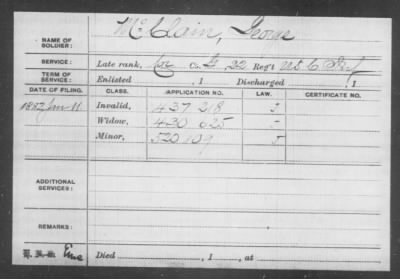 NAME OF SOLDIER: McClain, George
SERVICE: Late rank, Co. G, 22 Reg't U.S.C. Inf
TERM OF SERVICE: Enlisted , 1 Discharged , 1
DATE OF FILING. CLASS. APPLICATION NO. LAW. CERTIFICATE NO.
Jan 11 Invalid, 437 218
Widow, 430 625
Minor, 520 109
ADDITIONAL SERVICES:
REMARKS:
Died , 1 , at